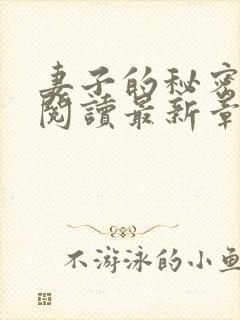 妻子的秘密
閱讀最新章
不游泳的小魚